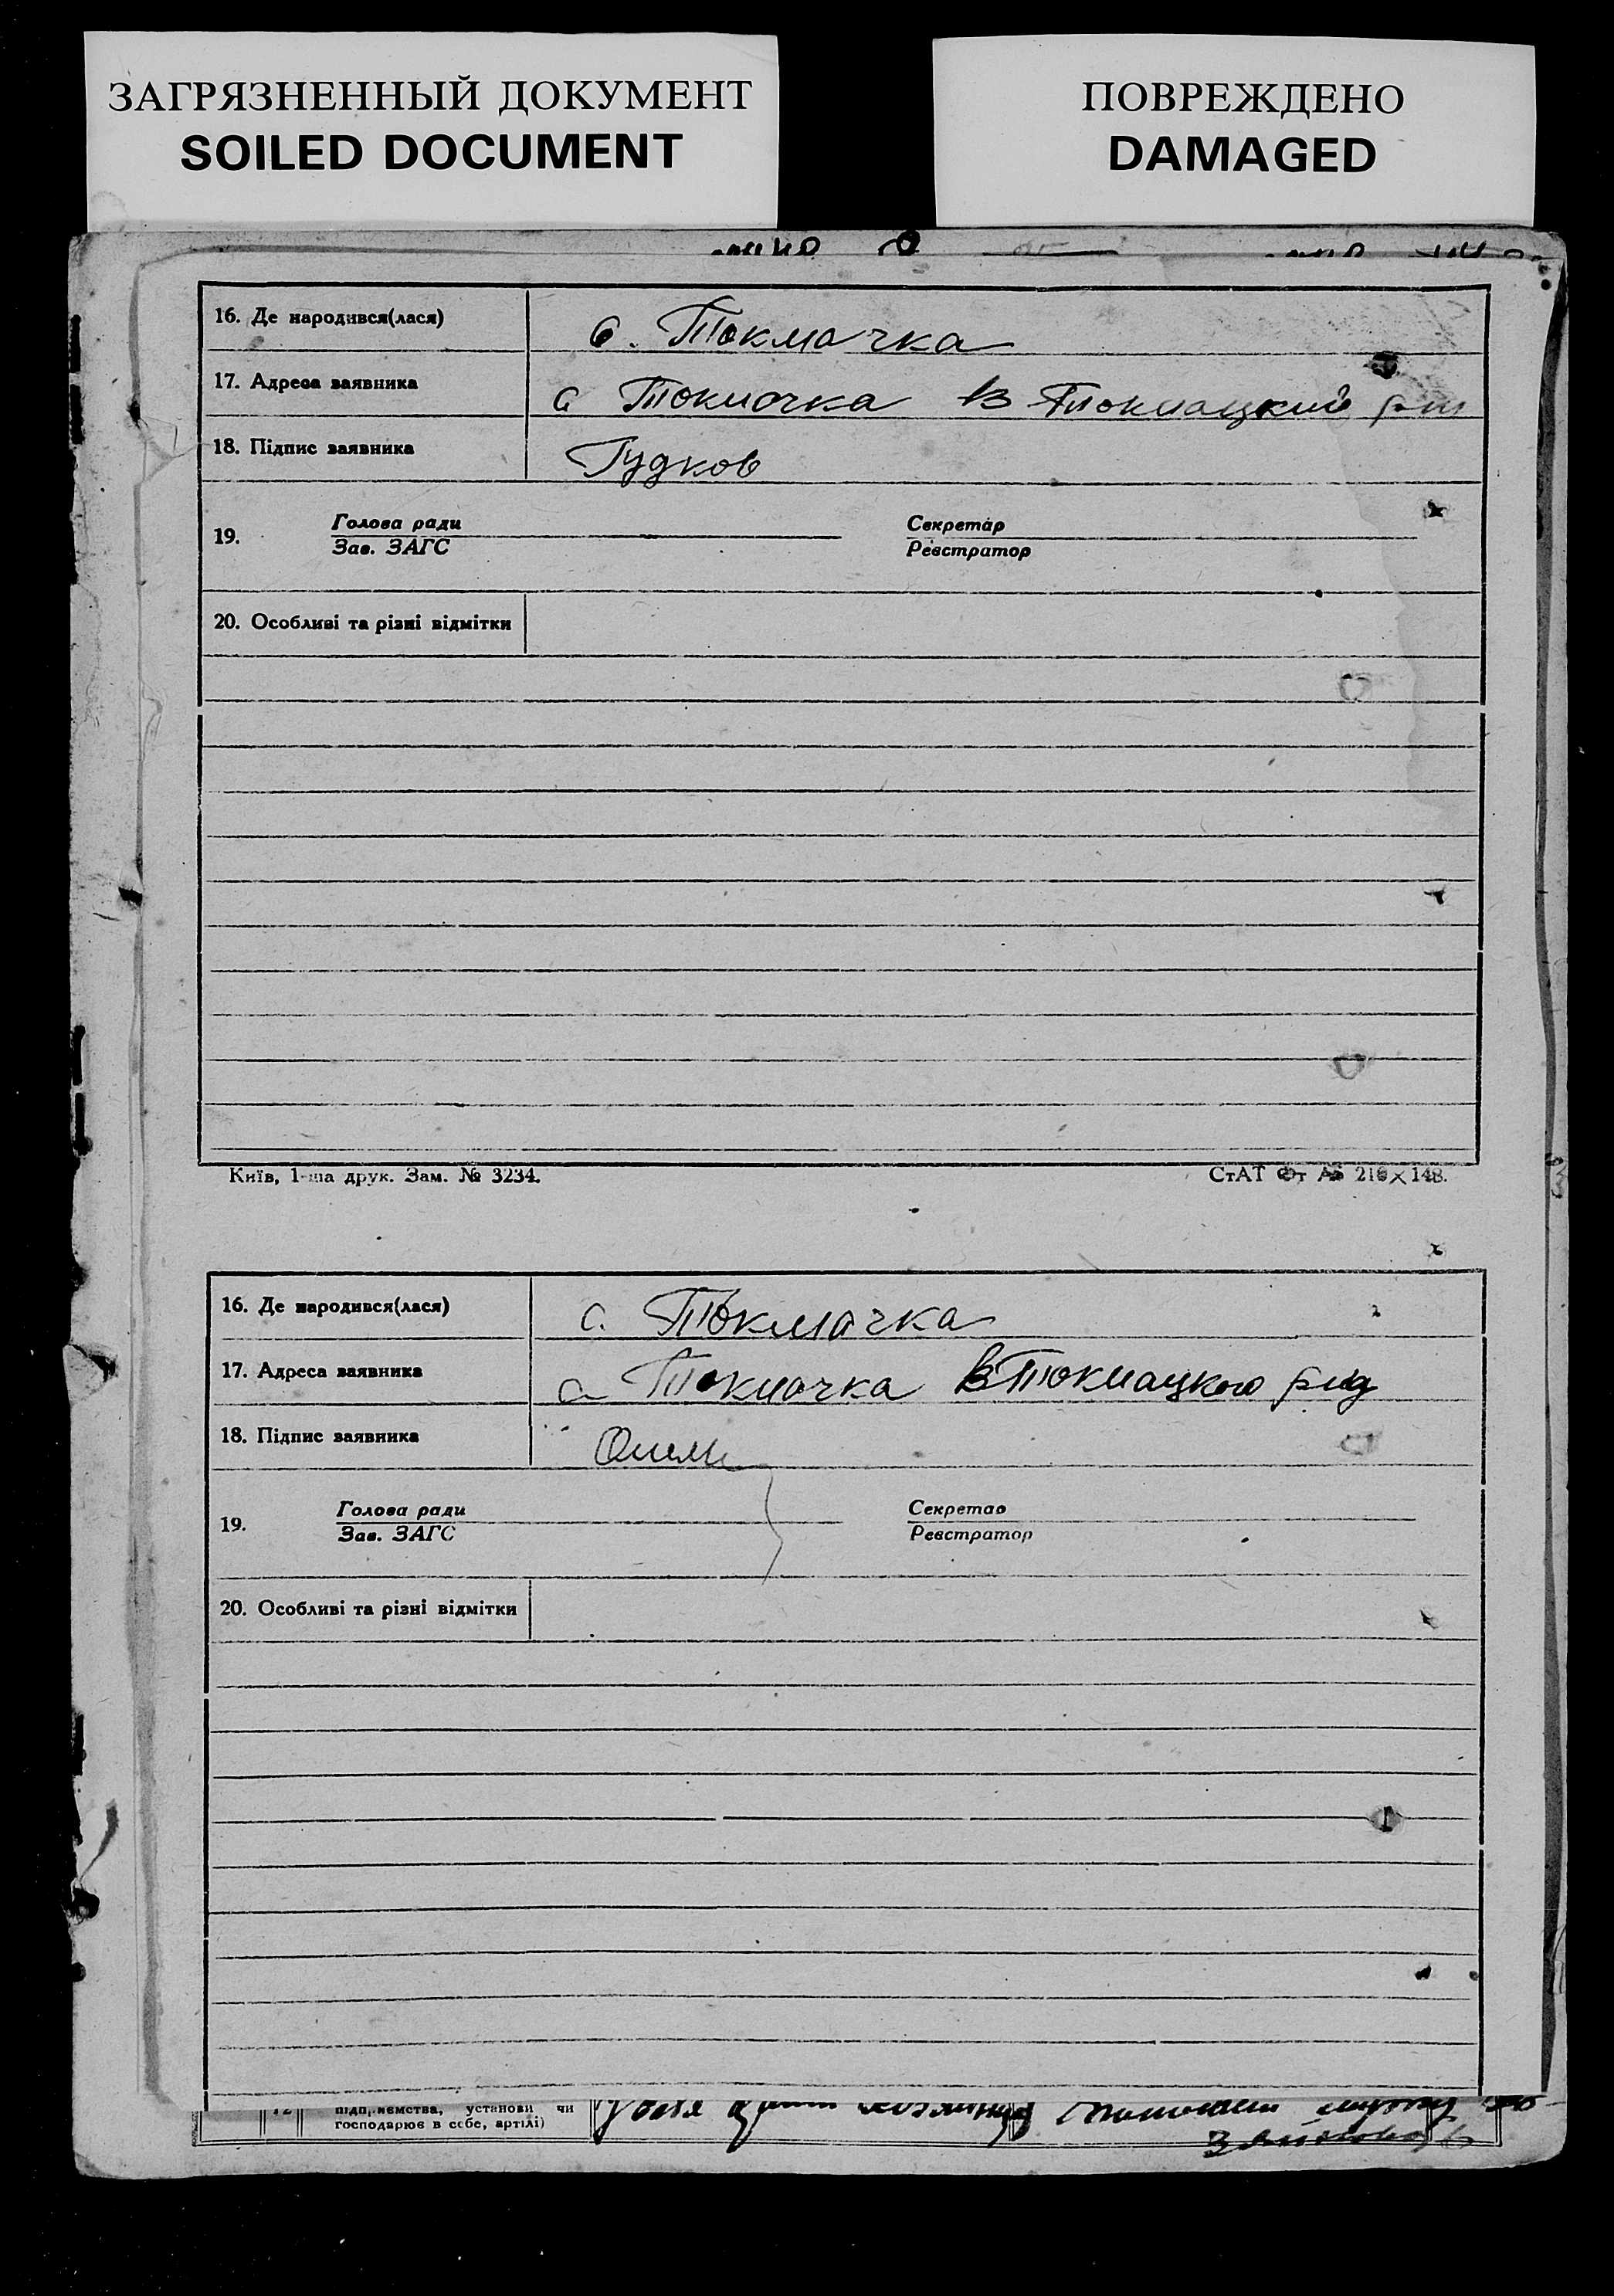 ЗАГРЯЗНЕННЫЙ ДОКУМЕНТ
SOILED DOCUMENT
ПОВРЕЖДЕНО
DAMAGED
16. Де народився(лася) с. Токмачка
17. Адреса заявника с Токмачка В Токмацкий
18. Підпис заявника Гудков
19. Голова ради Секретар
Зав. ЗАГС Реєстратор
20. Особливі та різні відмітки
Київ, 1-ша друк. Зам. № 3234. СтАТ Фт А5 210×148.
16. Де народився(лася) с. Токмачка
17. Адреса заявника с Токмачка В Токмацкого
18. Підпис заявника
19. Голова ради Секретар
Зав. ЗАГС Реєстратор
20. Особливі та різні відмітки
12 підприємства, установи чи
господарює в себе, артілі)